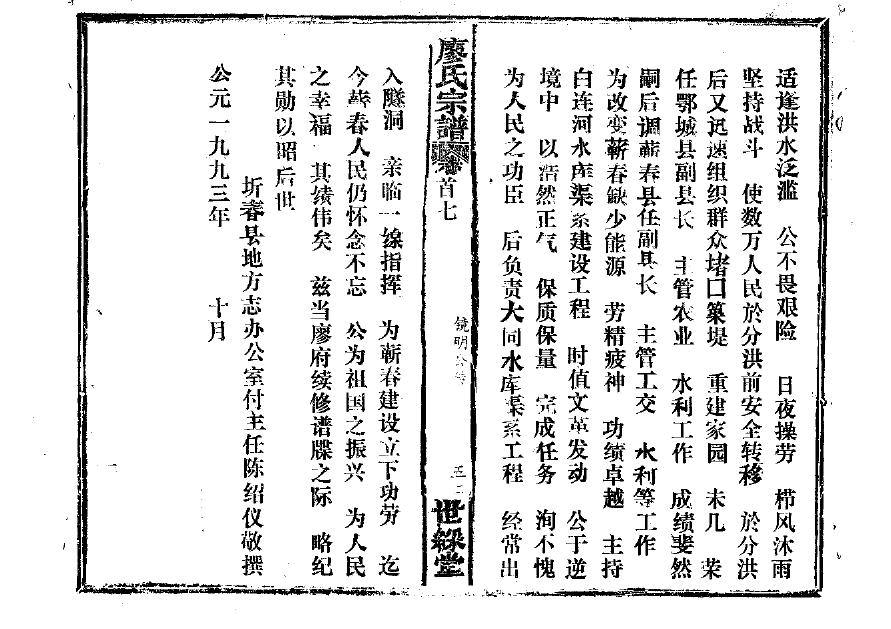 适逢洪水泛滥　公不畏艰险　日夜操劳　栉风沐雨
坚持战斗　使数万人民於分洪前安全转移　於分洪
后又迅速组织群众堵口筑堤　重建家园　未几　荣
任鄂城县副县长　主管农业　水利工作　成绩斐然
嗣后调蕲春县任副县长　主管工交　水利等工作
为改变蕲春缺少能源　劳精疲神　功绩卓越　主持
白连河水库渠系建设工程　时值文革发动　公于逆
境中　以浩然正气　保质保量　完成任务　洵不愧
为人民之功臣　后负责大同水库渠系工程　经常出
廖氏宗譜
卷首七
镜明公传
五
世綵堂
入隧洞　亲临一线指挥　为蕲春建设立下功劳　迄
今蕲春人民仍怀念不忘　公为祖国之振兴　为人民
之幸福　其绩伟矣　兹当廖府续修谱牒之际　略纪
其勋以昭后世
圻春县地方志办公室付主任陈绍仪敬撰
公元一九九三年　十月